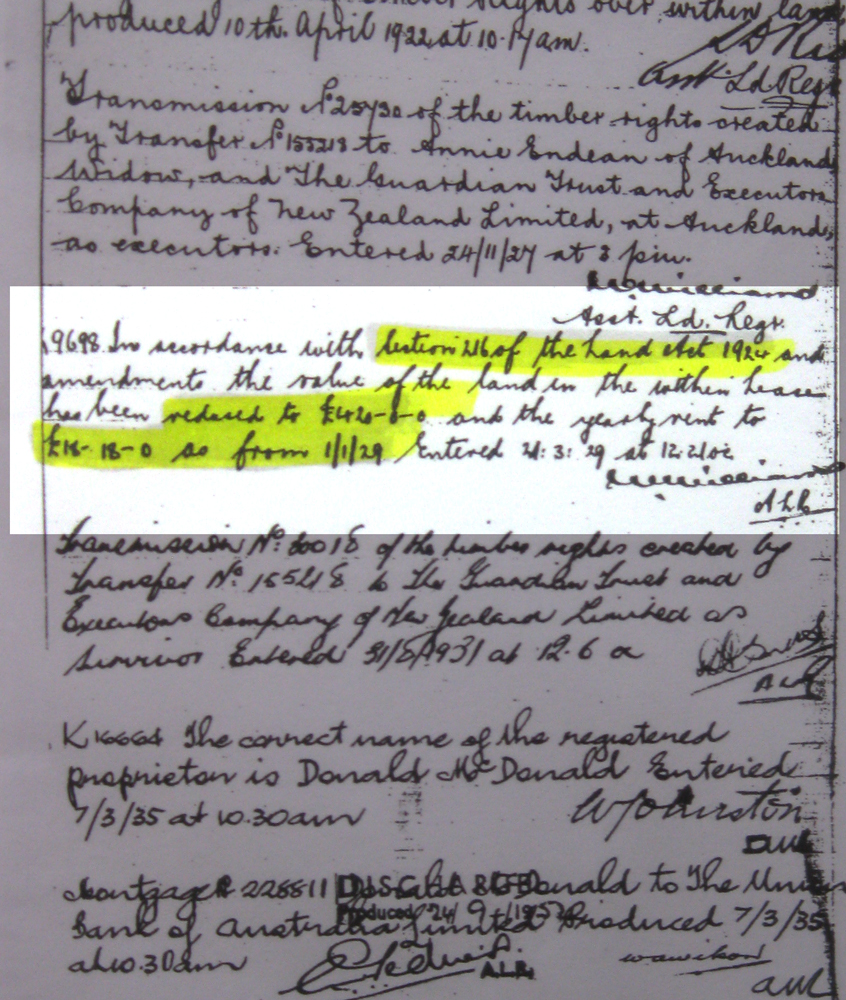 rights over within land
produced 10th. April 1922 at 10.17 am.
Asst Ld Regr
Transmission No 25730 of the timber rights created
by Transfer No 155218 to Annie Endean of Auckland
Widow, and The Guardian Trust and Executors
Company of New Zealand Limited, at Auckland,
as executors. Entered 24/11/27 at 3 pm.
Asst. Ld. Regr.
9698 In accordance with Section 216 of the Land Act 1924 and
amendments the value of the land in the within Lease
has been reduced to £420-0-0 and the yearly rent to
£18-18-0 as from 1/1/29 Entered 21:3:29 at 12.21 oc
A L R
Transmission No. of the timber rights created by
Transfer No. 155218 to The Guardian Trust and
Executors Company of New Zealand Limited as
survivor Entered 31/8/1931 at 12.6 
ALR
K The correct name of the registered
proprietor is Donald McDonald Entered
7/3/35 at 10.30am
ALR
Mortgage 228811 Donald McDonald to The Union
DISCHARGED
Produced 24/9/1952
Bank of Australia Limited Produced 7/3/35
at 10.30am
A.L.R.
ALR